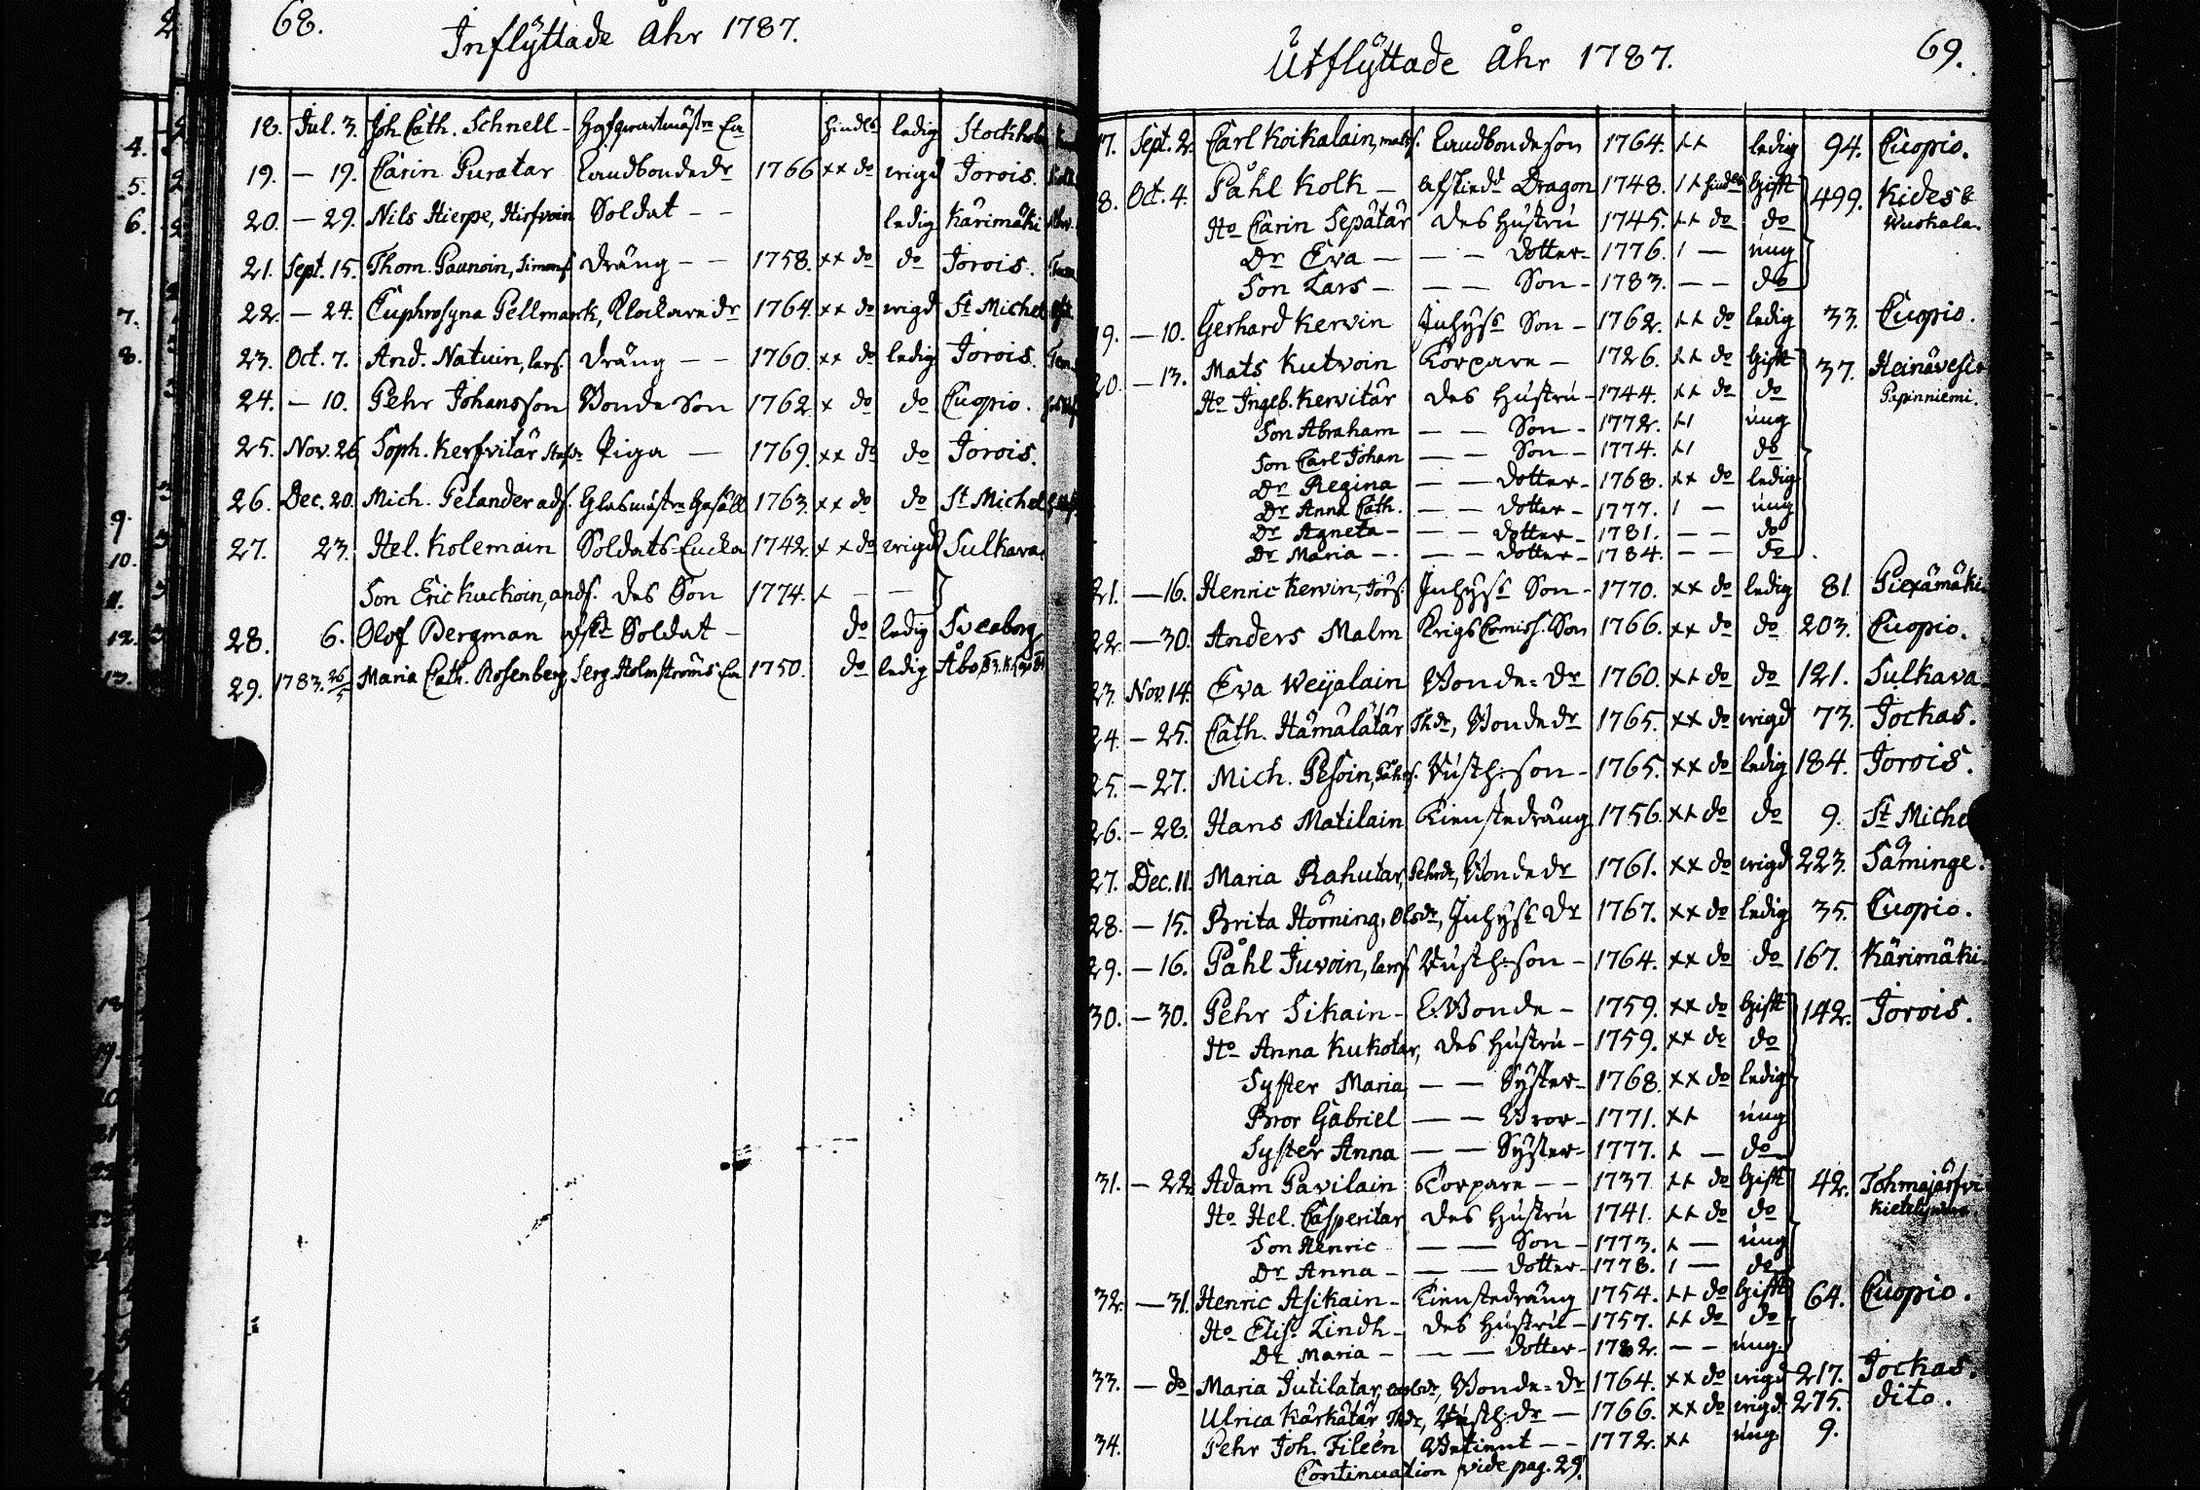 68.
Inflyttade Åhr 1787.
18. Jul. 3. Joh. Cath. Schnell - ledig Stockholm
19. — 19. Carin Puratar Landbonde dr 1766 ×× do vigd Jorois.
20. — 29. Nils Hierpe, Hirfvoin Soldat - - ledig Kärimäki
21. Sept. 15. Thom. Paunoin, Simons. dräng - - 1758. ×× do do Jorois.
22. — 24. Euphrosyna Pellmark, Klockare dr 1764. ×× do vigd St Michel
23. Oct. 7. And. Natuin, lars. dräng - - 1760. ×× do ledig Jorois.
24. — 10. Pehr Johansson Bonde Son 1762. × do do Cuopio.
25. Nov. 26 Soph. Kerfvitär Piga — 1769. ×× do do Jorois.
26. Dec. 20. Mich. Gelander ads. Glasmästre Gesäll 1763. ×× do do St Michel
27. 23. Hel. Kolemain Soldats Encka 1742. × × do vigd Sulkava.
Son Eric Kuckoin, ands. des Son 1774. × — —
28. 6. Olof Bergman afskd Soldat - do ledig Sveaborg
29. 1783. 26/5 Maria Cath. Rosenberg Serg. Holmströms 1750. do ledig Åbo
69.
Utflyttade Åhr 1787.
17. Sept. 2. Carl Koikalain, mats. Landbonde son 1764. ×× ledig 94. Cuopio.
18. Oct. 4. Påhl Kolk — afskedd Dragon 1748. Gift 499. Kides &
Ho Carin Sepätär des Hustru 1745. ×× do do Wuokala.
Dr Eva — — — dotter - 1776. 1 — ung
Son Lars — — — Son - 1783. — — do
19. — 10. Gerhard Kervin Inhyss Son - 1762. ×× do ledig 33. Cuopio.
20. — 13. Mats Kutvoin Torpare — 1726. ×× do Gift 37. Heinävesi
Ho Ingeb. Kervitär des Hustru - 1744. ×× do do Papinniemi.
Son Abraham — — Son - 1772. ×1 ung
Son Carl Johan — — Son - 1774. ×1 do
Dr Regina — — dotter - 1768. ×× do ledig
Dr Anna Cath. — — dotter - 1777. 1 — ung
Dr Agneta — — — dotter - 1781. — — do
Dr Maria — — — dotter - 1784. — — do
21. — 16. Henric Kervin, Jörs. Inhyss Son - 1770. ×× do ledig 81. Piexämäki.
22. — 30. Anders Malm Krigs Comiss. Son 1766. ×× do do 203. Cuopio.
23. Nov. 14. Eva Weijalain Bonde = dr 1760. ×× do do 121. Sulkava
24. — 25. Cath. Hämälätär Thdr, Bonde dr 1765. ×× do vigd 73. Jockas.
25. — 27. Mich. Pesoin, Påhls. Rusth. son - 1765. ×× do ledig 184. Jorois.
26. — 28. Hans Matilain Tienstedräng 1756. ×× do do 9. St Michel
27. Dec. 11. Maria Rahutar, Pehrdr, Bonde dr 1761. ×× do vigd 223. Säminge.
28. — 15. Brita Hörning, Olsdr, Inhyss Dr 1767. ×× do ledig 35. Cuopio.
29. — 16. Påhl Juvoin, lars. Rusth. son - 1764. ×× do do 167. Kärimäki.
30. — 30. Pehr Sikain - L. Bonde - 1759. ×× do Gift 142. Jorois.
Ho Anna Kukotar, des Hustru - 1759. ×× do do
Syster Maria — — Syster - 1768. ×× do ledig
Bror Gabriel — — Bror - 1771. ×× ung
Syster Anna — — Syster - 1777. × — do
31. — 22. Adam Pavilain Torpare — - 1737 ×× do Gift 42. Tohmajärfvi
Ho Hel. Casperitar des Hustru 1741. ×× do do
Son Henric — — Son - 1773. × — ung
Dr Anna - — — dotter - 1778. 1 — do
32. — 31. Henric Asikain - Tienstedräng 1754. ×× do Gift 64. Cuopio.
Ho Elis. Lindh - des Hustru - 1757. ×× do do
Dr Maria — — — dotter - 1782. — — ung.
33. — do Maria Jutilatar, Carlsdr, Bonde = Dr 1764. ×× do vigd 217. Jockas.
Ulrica Kärkätär Thdr, Rusth. Dr — 1766. ×× do vigd. 275. dito.
34. Pehr Joh. Fileén Betient — - 1772. ×× ung. 9.
Continuation vide pag. 29.